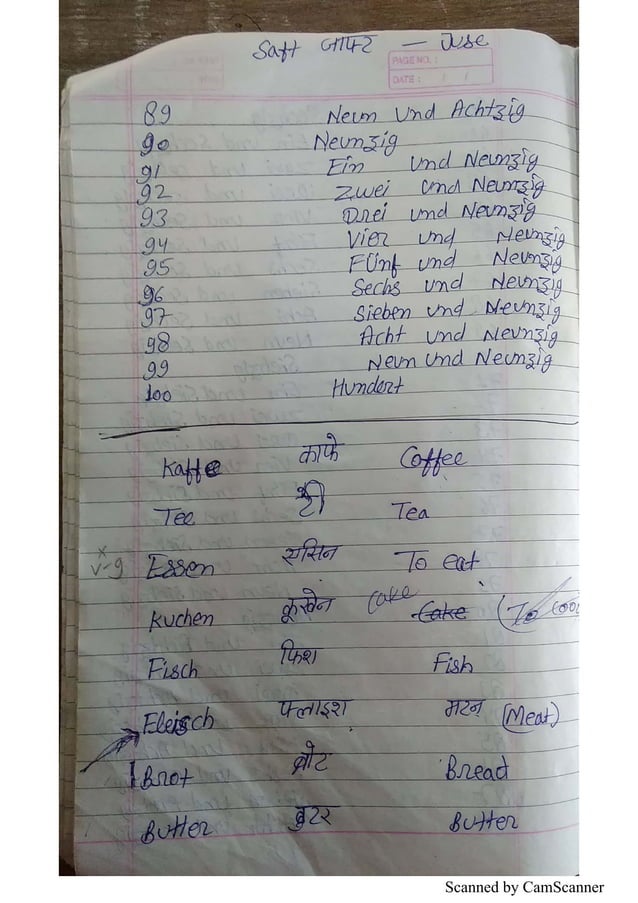 Saft जाफ्ट — Juse
PAGE NO. :
DATE : / /
89 Neun und Achtzig
90 Neunzig
91 Ein und Neunzig
92 Zwei und Neunzig
93 Drei und Neunzig
94 Vier und Neunzig
95 Fünf und Neunzig
96 Sechs und Neunzig
97 Sieben und Neunzig
98 Acht und Neunzig
99 Neun und Neunzig
100 Hundert
Kaffee काफे Coffee
Tee टी Tea
x
v-g Essen एसिन To eat
Kuchen कूखेन Cake Cake (To
Fisch फिश Fish
Fleisch फ्लाइश मटन (Meat)
Brot ब्रोट Bread
Butter बुटर Butter
Scanned by CamScanner